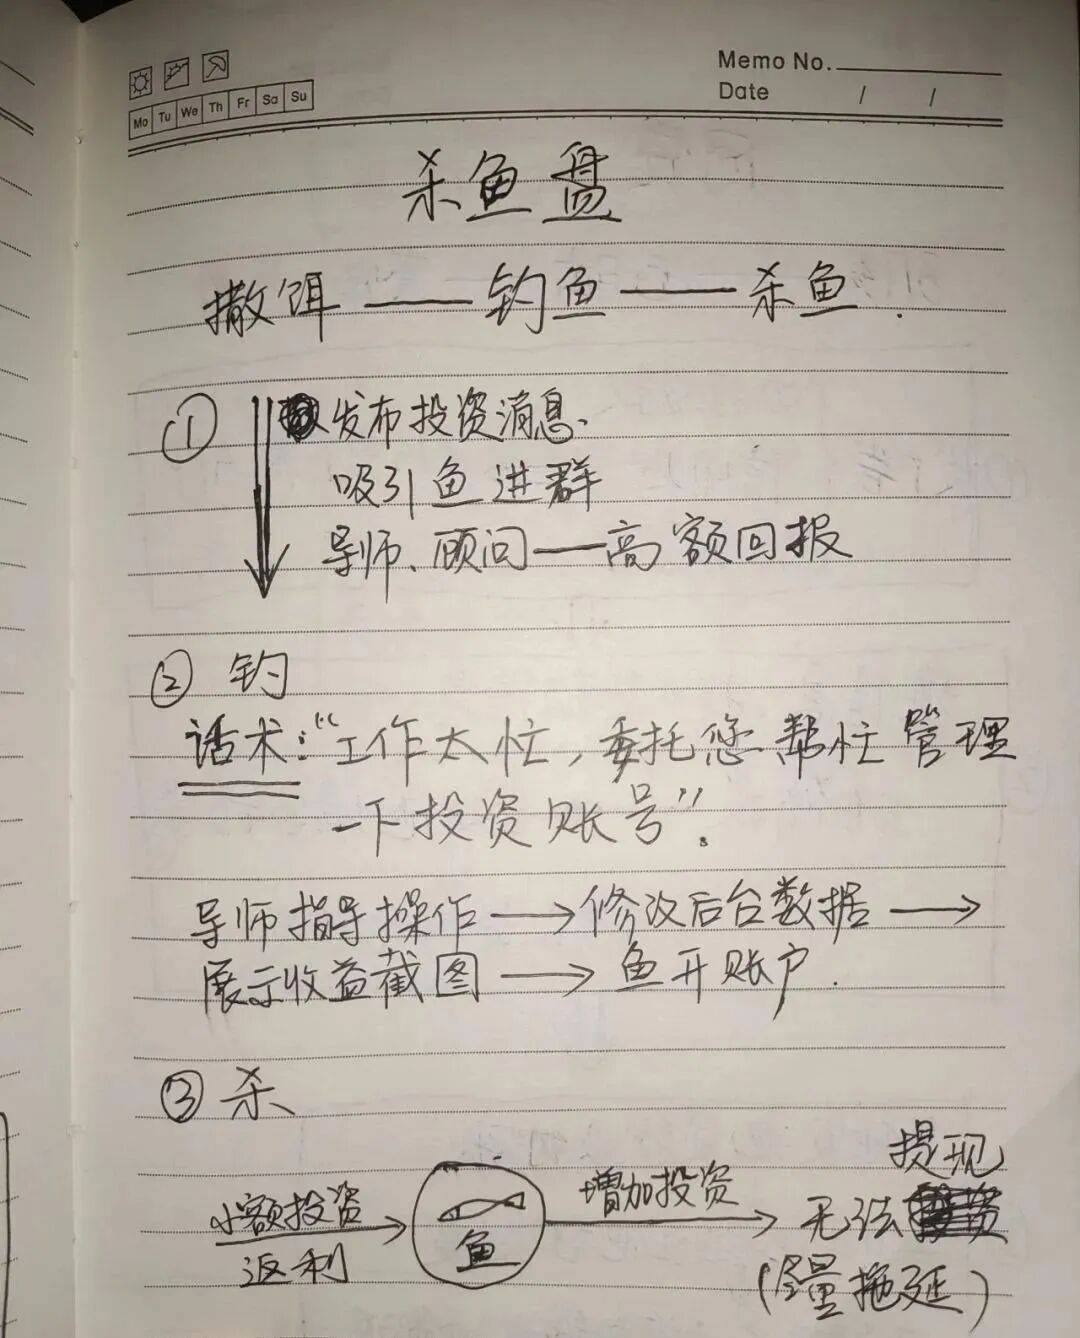 Memo No.
Mo Tu We Th Fr Sa Su
Date / /
杀鱼盘
撒饵——钓鱼——杀鱼.
① 发布投资消息.
吸引鱼进群
导师、顾问——高额回报
② 钓
话术:“工作太忙,委托您帮忙管理
一下投资账号”。
导师指导操作→修改后台数据→
展示收益截图→鱼开账户.
③ 杀
提现
小额投资 增加投资 无法
返利 鱼 (尽量拖延)